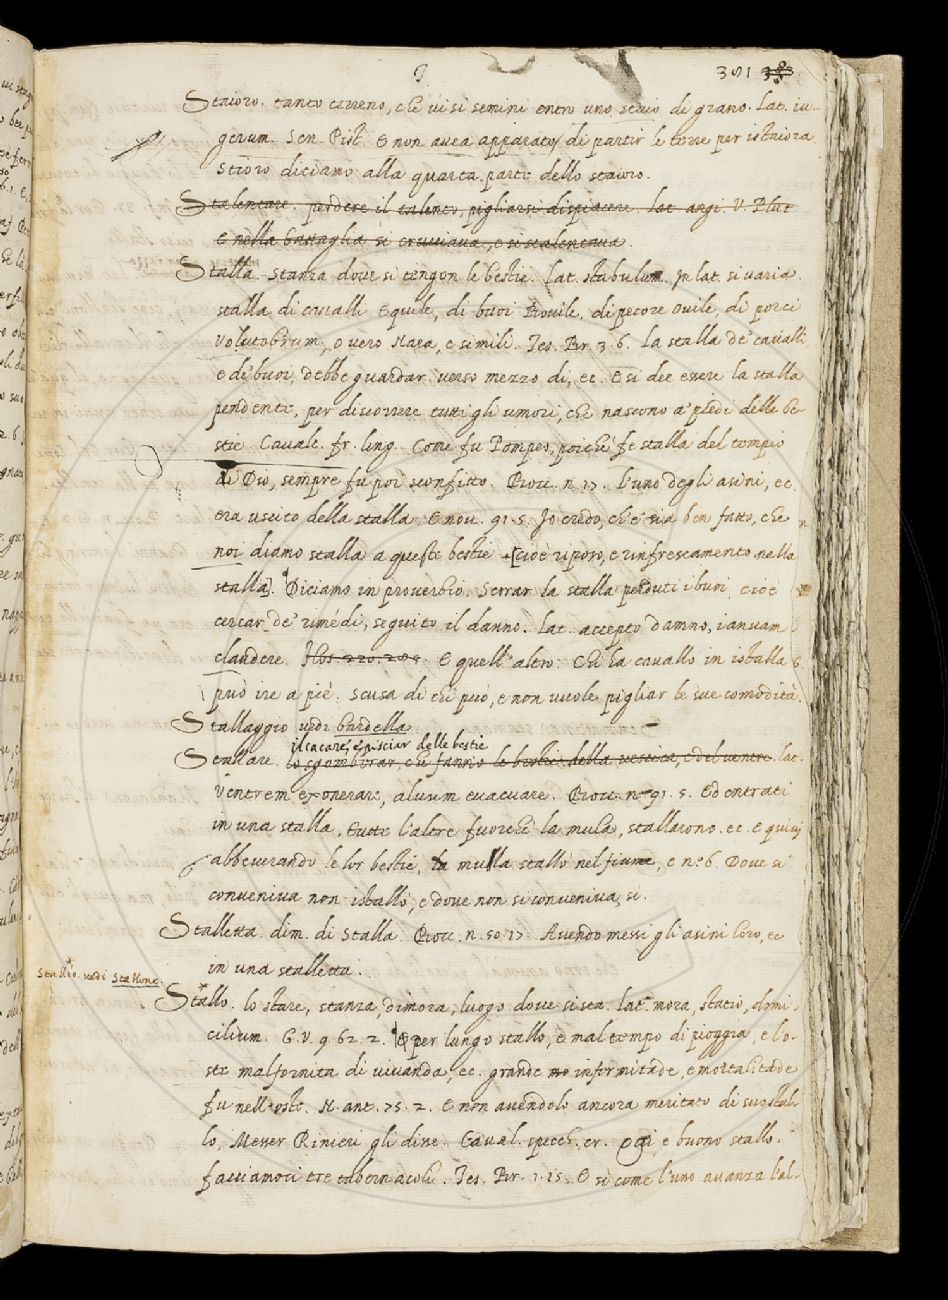 391 383
Staioro. tanto terreno, che vi si semini entro uno staio di grano. Lat. iu-
gerum. Sen. Pist. E non avea apparato di partir le terre per istaiora
Stioro diciamo alla quarta parte dello staioro.
Stalentare. perdere il talento, pigliarsi dispiacere. lat. angi. V. Plut.
E nella battaglia si crucciava, e si stalentava.
Stalla. Stanza dove si tengon le bestie. Lat. stabulum. In lat. si varia.
stalla di cavalli Equile, di buoi Bovile, di pecore ovile, di porci
Volutobrum, o vero Hara, e simili. Tes. Br. 3. 6. La stalla de' cavalli,
e de' buoi, debbe guardar verso mezzo di, ec. E si dee essere la stalla
pendente, per discorrere tutti gli umori, che nascono a' piedi delle be-
stie. Cavalc. fr. ling. Come fu Pompeo, poichè fe stalla del tempio
di Dio, sempre fu poi sconfitto. Bocc. n. 17. l'uno degli asini, ec.
era uscito della stalla. E nov. 91. 5. Io credo, che sia ben fatto, che
noi diamo stalla a queste bestie [cioè riposo, e rinfrescamento nella
stalla]. Diciamo in proverbio. Serrar la stalla perduti i buoi, cioè
cercar de' rimédi, seguito il danno. Lat. accepto damno, ianuam
claudere. Flos. 220. E quell'altro. Chi ha cavallo in istalla
può ire a piè. scusa di chi può, e non vuole pigliar le sue comodità.
Stallaggio vedi bardella
il cacare, e pisciar delle bestie
Stallare. lo sgomberar, che fanno le bestie della vescica, e del ventre. lat.
Ventrem exonerare, alvum evacuare. Bocc. n. 91. 5. Ed entrati
in una stalla, tutte l'altre fuorchè la mula, stallarono. ec. E quivi
abbeverando le lor bestie, la mula stallò nel fiume, e n. 6. Dove si
conveniva non istallò, e dove non si conveniva, si.
Stalletta. dim. di Stalla. Bocc. n. 50. 17. Avendo messi gli asini loro, ec
in una stalletta.
Stallio. vedi Stallone.
Stallo. lo stare, stanza, dimora, luogo dove si sta. lat. mora, statio, domi-
cilium. G. V. 9. 62. 2. E per lungo stallo, e mal tempo di pioggia, e l'o-
ste mal fornita di vivanda, ec. grande infermitade, e mortalitade
fu nell'oste. N. ant. 75. 2. E non avendolo ancora meritato di suo stal-
lo, Messer Rinieri gli disse. Caval. specch. cr. Qui è buono stallo.
facciamoci tre tabernacoli. Tes. Br. 1. 15. E si come l'uno avanza l'al-